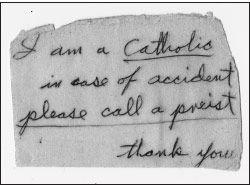 I am a Catholic
in case of accident
please call a preist
thank you